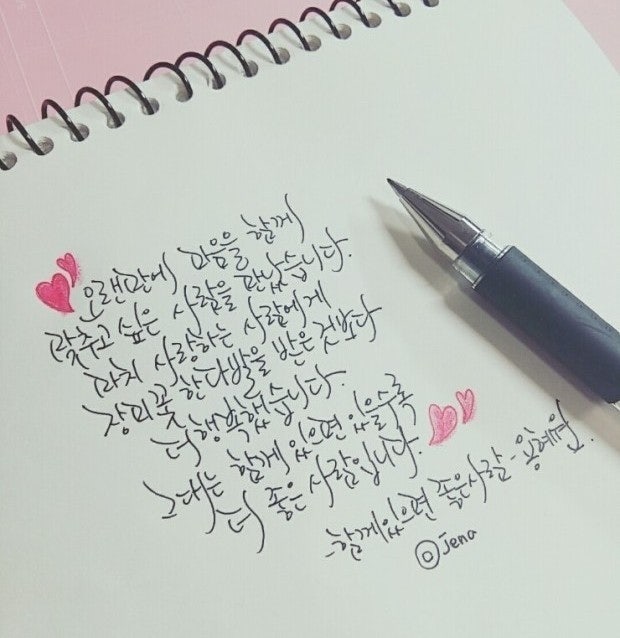 오랜만에 마음을 함께
맞추고 싶은 사람을 만났습니다.
마치 사랑하는 사람에게
장미꽃 한다발을 받은 것보다
더 행복했습니다.
그대는 함께 있으면 있을수록
더 좋은 사람입니다.
-함께 있으면 좋은사람-용혜원.
ⓞ jena